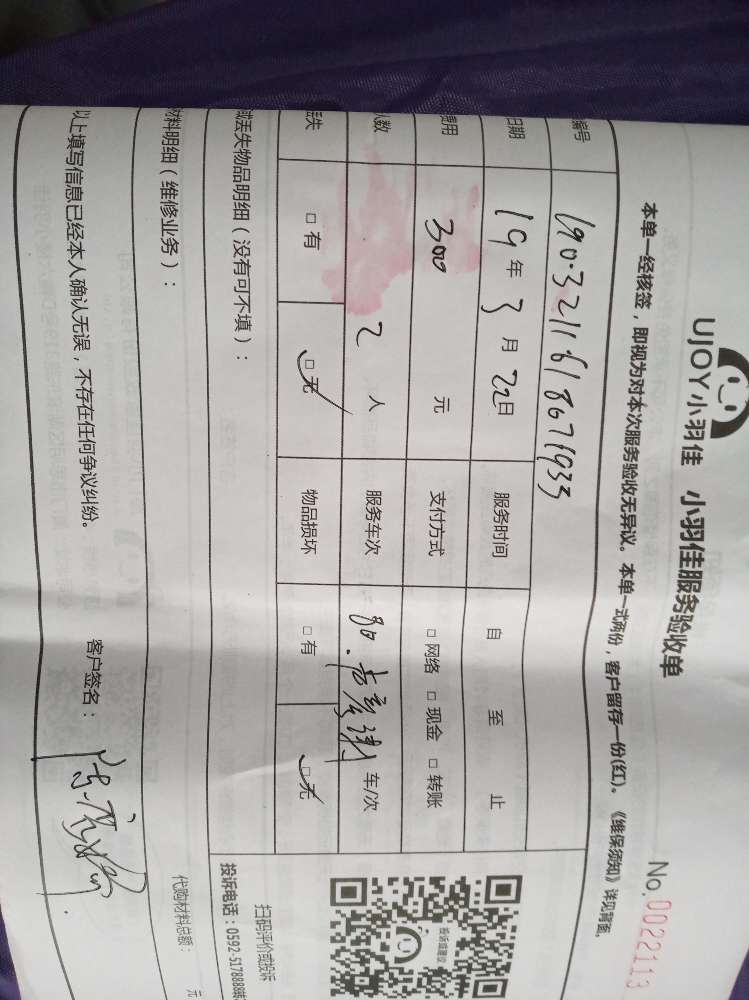 UJOY小羽佳 小羽佳服务验收单
No. 0022113
本单一经核签，即视为对本次服务验收无异议。本单一式两份，客户留存一份(红)。《维保须知》详见背面。
编号 1903211618671933
日期 19年3月22日 服务时间 自 至 止
费用 300 元 支付方式 □网络 □现金 □转账
人数 2 人 服务车次 车/次
丢失 □有 □无 物品损坏 □有 □无
或丢失物品明细（没有可不填）：
扫码评价或投诉
投诉电话：0592-5178888转
材料明细（维修业务）：
代购材料总额： 元
以上填写信息已经本人确认无误，不存在任何争议纠纷。 客户签名：